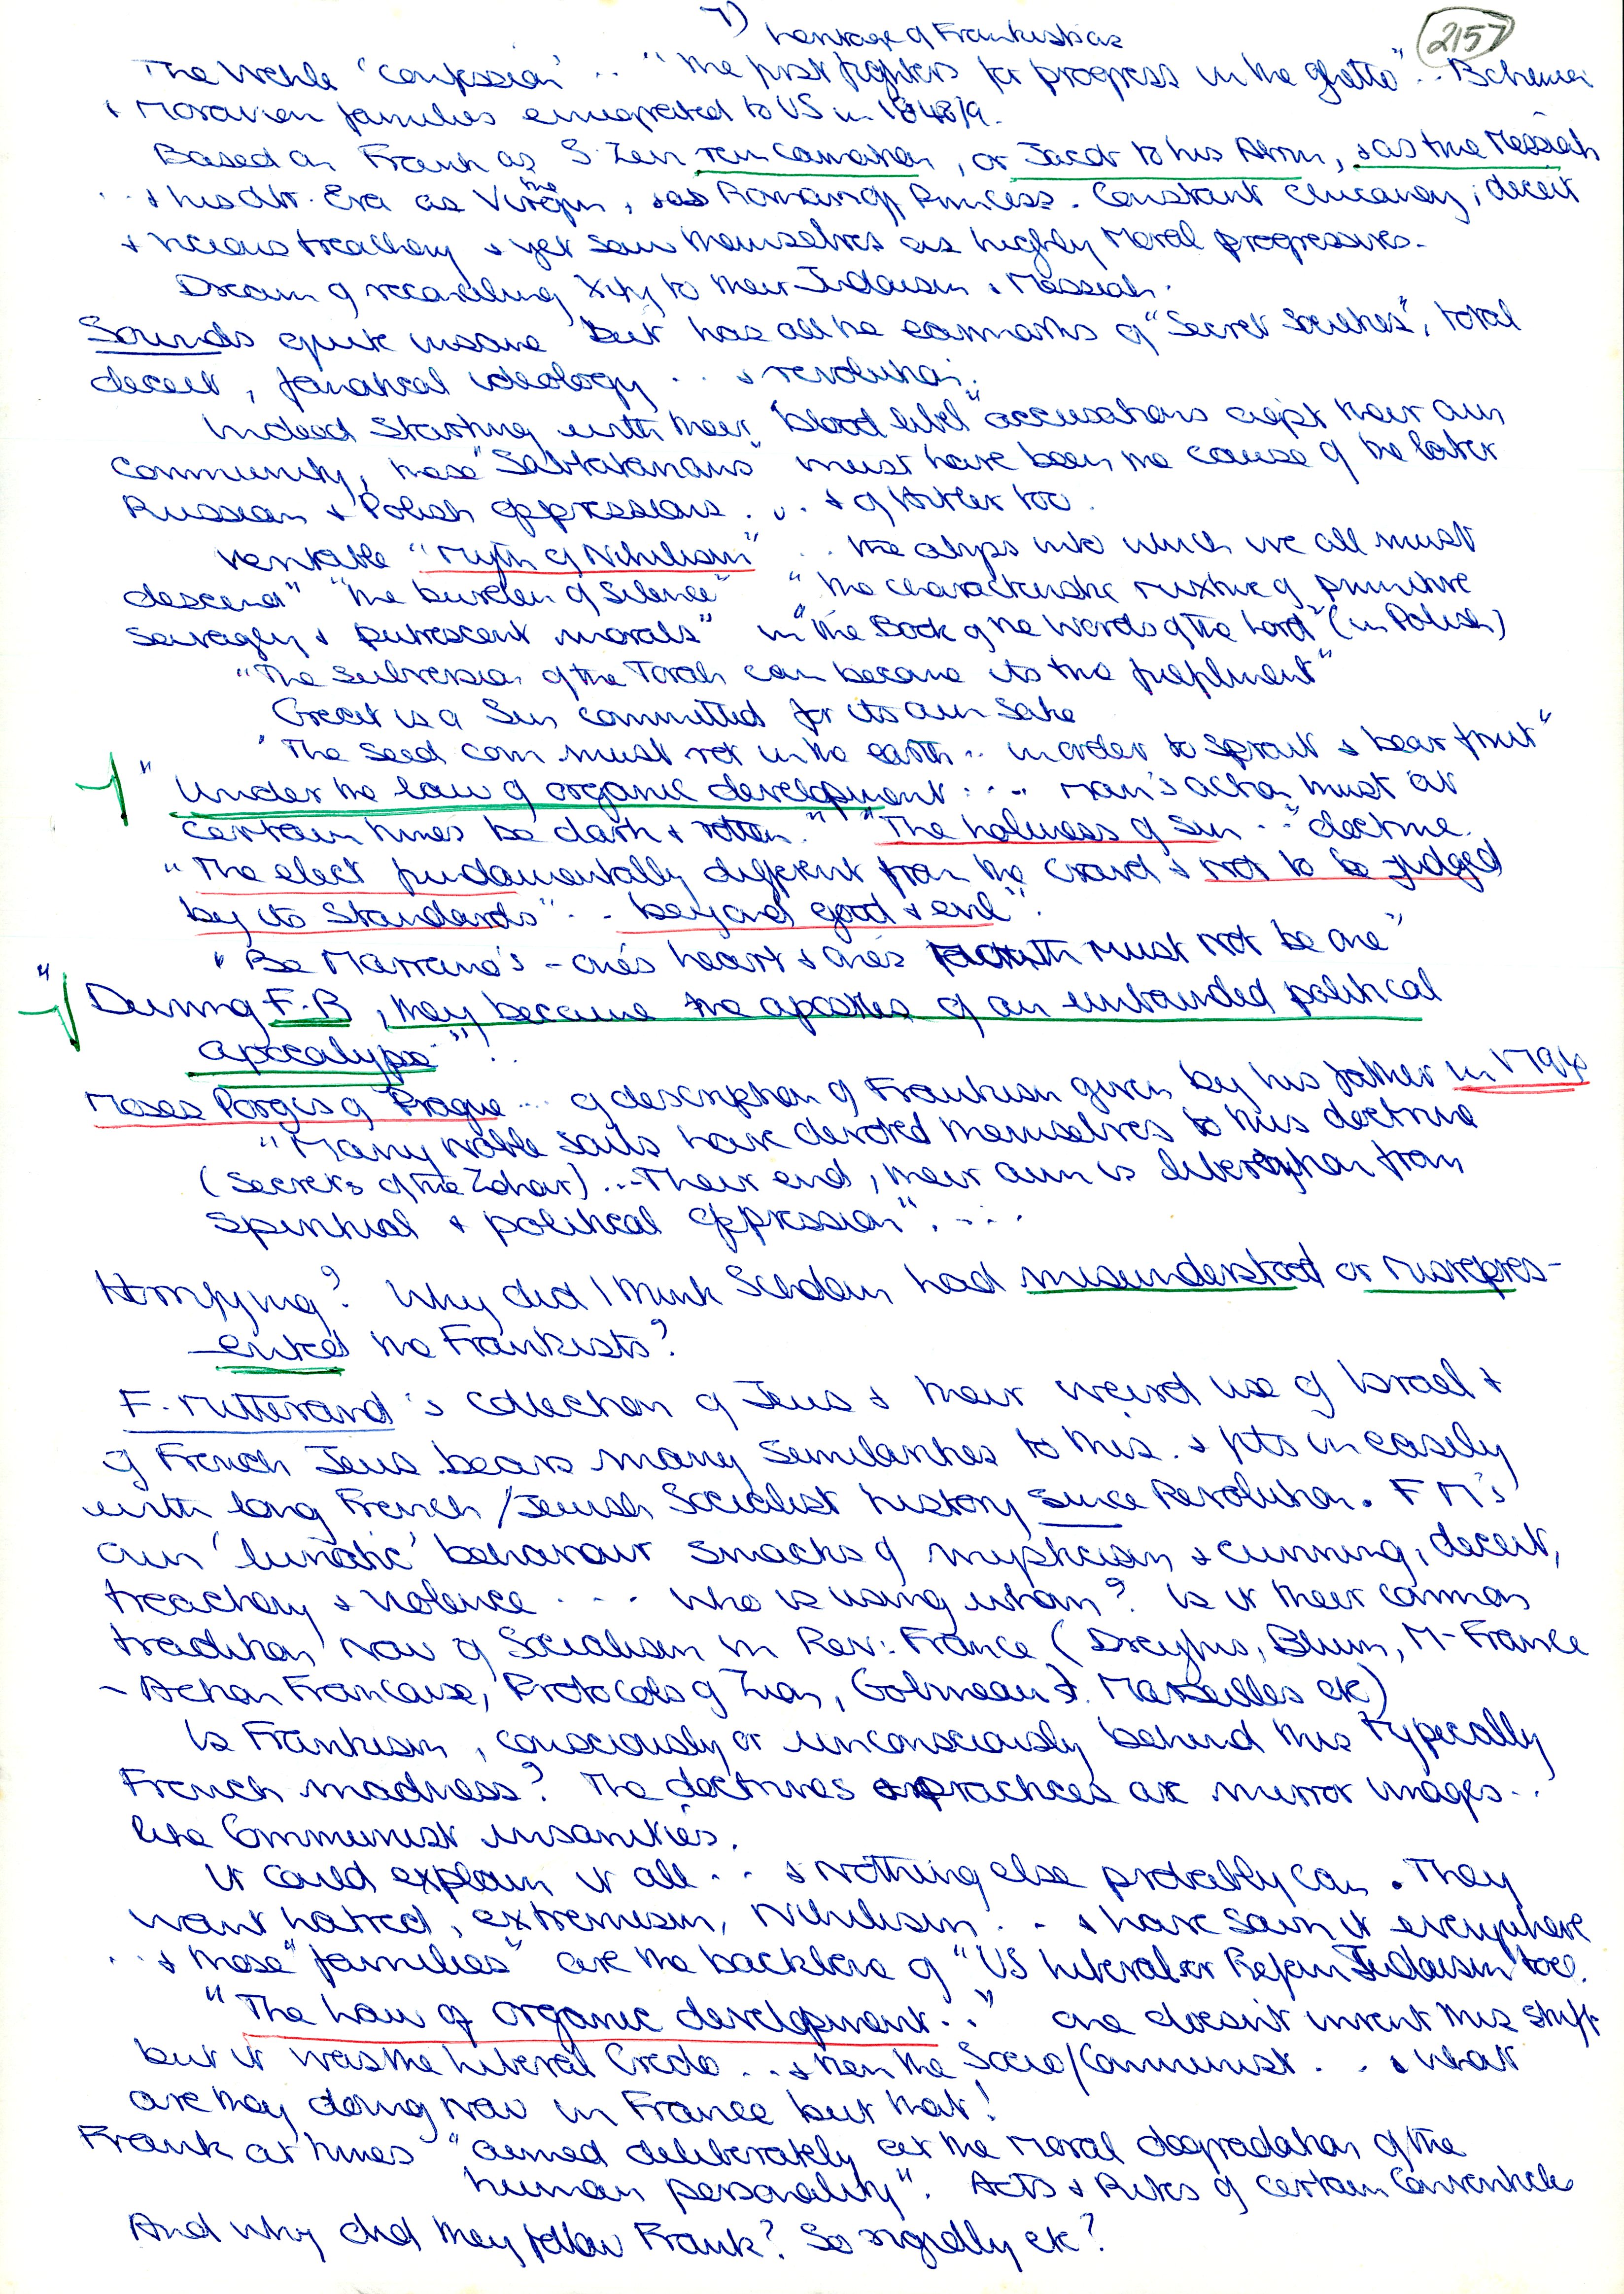 7)
2157
heritage of Frankists as
The Wehle 'Confession' .. "the first fighters for progress in the ghetto" .. Bohemian
& Moravian families emigrated to US in 1848/9.
Based on Frank as S. Zevi reincarnation, or Jacob to his Aaron, & as true Messiah
.. & his dtr. Eva as the Virgin, & as Romanoff Princess. Constant chicanery, deceit
& vicious treachery & yet saw themselves as highly moral progressives.
Dream of reconciling Xity to their Judaism & Messiah.
Sounds quite insane but has all the earmarks of "Secret Societies", total
deceit, fanatical ideology .. & revolution.
Indeed starting with their "blood libel" accusations agst their own
community, these "Sabbatarians" must have been the cause of the later
Russian & Polish oppressions ... & of Hitler too.
Veritable "Myth of Nihilism" .. the abyss into which we all must
descend" "the burden of Silence" "the characteristic mixture of primitive
savagery & putrescent morals" in "the Book of the Words of the Lord" (in Polish)
"The subversion of the Torah can become its true fulfilment"
Great is a Sin committed for its own sake
"The seed corn must rot in the earth .. in order to sprout & bear fruit"
"Under the law of organic development .... man's action must at
certain times be dark & rotten." "The holiness of sin .." doctrine.
"The elect fundamentally different from the crowd & not to be judged
by its standards" .. beyond good & evil".
"Be Marrano's - one's heart & one's mouth must not be one"
"During F.R, they became the apostles of an unbounded political
apocalypse"!.
Moses Porges of Prague ... of description of Frankism given by his father in 1794
"Many noble souls have devoted themselves to this doctrine
(Secrets of the Zohar) ... Their end, their aim is liberation from
spiritual & political oppression". ....
Horrifying? Why did I think Scholem had misunderstood or misrepres-
-ented the Frankists?
F. Mitterand's collection of Jews & their weird use of Israel &
of French Jews bears many similarities to this. & fits in easily
with long French/Jewish Socialist history since Revolution. F M's
own 'lunatic' behaviour smacks of mysticism & cunning, deceit,
treachery & violence ... who is using whom? Is it their common
tradition now of Socialism in Rev: France (Dreyfus, Blum, M-France
- Action Francaise, Protocols of Zion, Gobineau & Marseilles etc)
Is Frankism, consciously or unconsciously behind this typically
French madness? The doctrines & practices are mirror images ..
like Communist insanities.
It could explain it all .. & nothing else probably can. They
want hatred, extremism, nihilism .. & have sown it everywhere
.. & those "families" are the backbone of "US Liberal or Reform Judaism" too.
"The Law of organic development .." one doesn't invent this stuff
but it was the Liberal Credo .. & then the Socio/Communist .. & what
are they doing now in France but that!
Frank at times "aimed deliberately at the moral degradation of the
human personality". Acts & Rites of certain Conventicles
And why did they follow Frank? So rigidly etc?